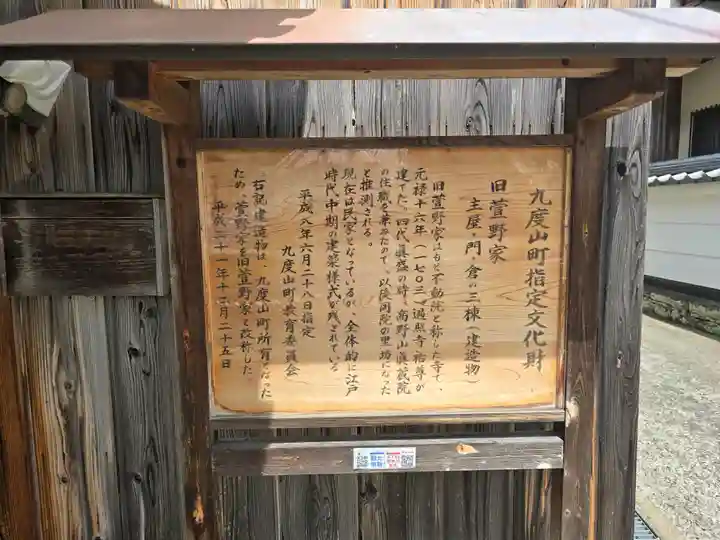 九度山町指定文化財
旧萱野家
主屋・門・倉の三棟(建造物)
旧萱野家はもと不動院と称した寺で、
元禄十六年(一七〇三)遍照寺裕尊が
建てた。四代眞盛の時、高野山眞蔵院
の住職を兼ねたので、以後同院の里坊になった
と推測される。
現在は民家となっているが、全体的に江戸
時代中期の建築様式が残されている
平成八年六月二十八日指定
九度山町教育委員会
右記建造物は、九度山町所有となった
ため、萱野家を旧萱野家と改称した。
平成二十一年十二月二十五日